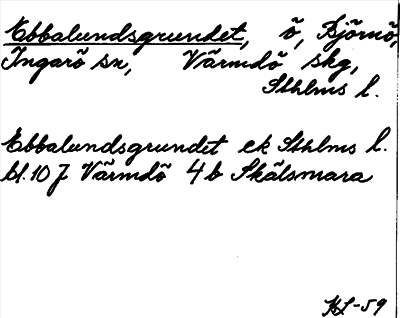 Ebbalundsgrundet, ö, Björnö,
Ingarö sn, Värmdö skg,
Sthlms l.
Ebbalundsgrundet ek Sthlms l.
bl. 107 Värmdö 4 b Skälsmara
HL-59